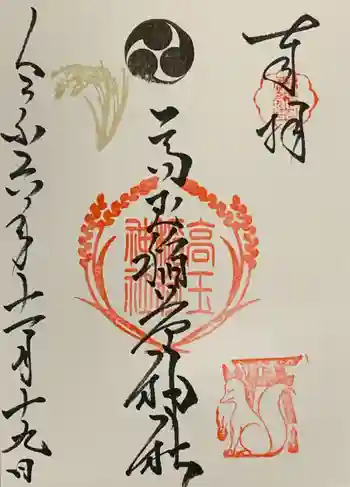 奉拝
高玉稲荷神社
令和六年十一月十九日
高玉
稲荷
神社